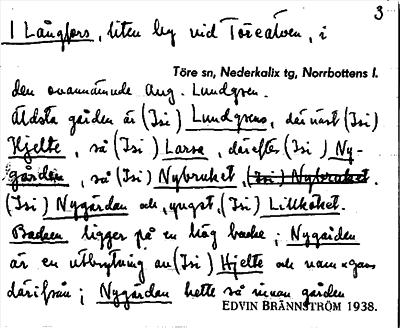 3
I Långfors, liten by vid Töreälven, i
Töre sn, Nederkalix tg, Norrbottens l.
den ovannämnde Aug. Lundgren.
Äldsta gården är (Isi) Lundgrens, därnäst (Isi)
Hjelte, så (Isi) Larsa, därefter (Isi) Ny-
gården, så (Isi) Nybruket, (Isi) Nybruket.
(Isi) Nygärdan och, yngst, (Isi) Lillköket.
Backen ligger på en hög backe; Nygården
är en utbrytning av (Isi) Hjelte och
därifrån; Nygärdan hette så innan gården
EDVIN BRÄNNSTRÖM 1938.